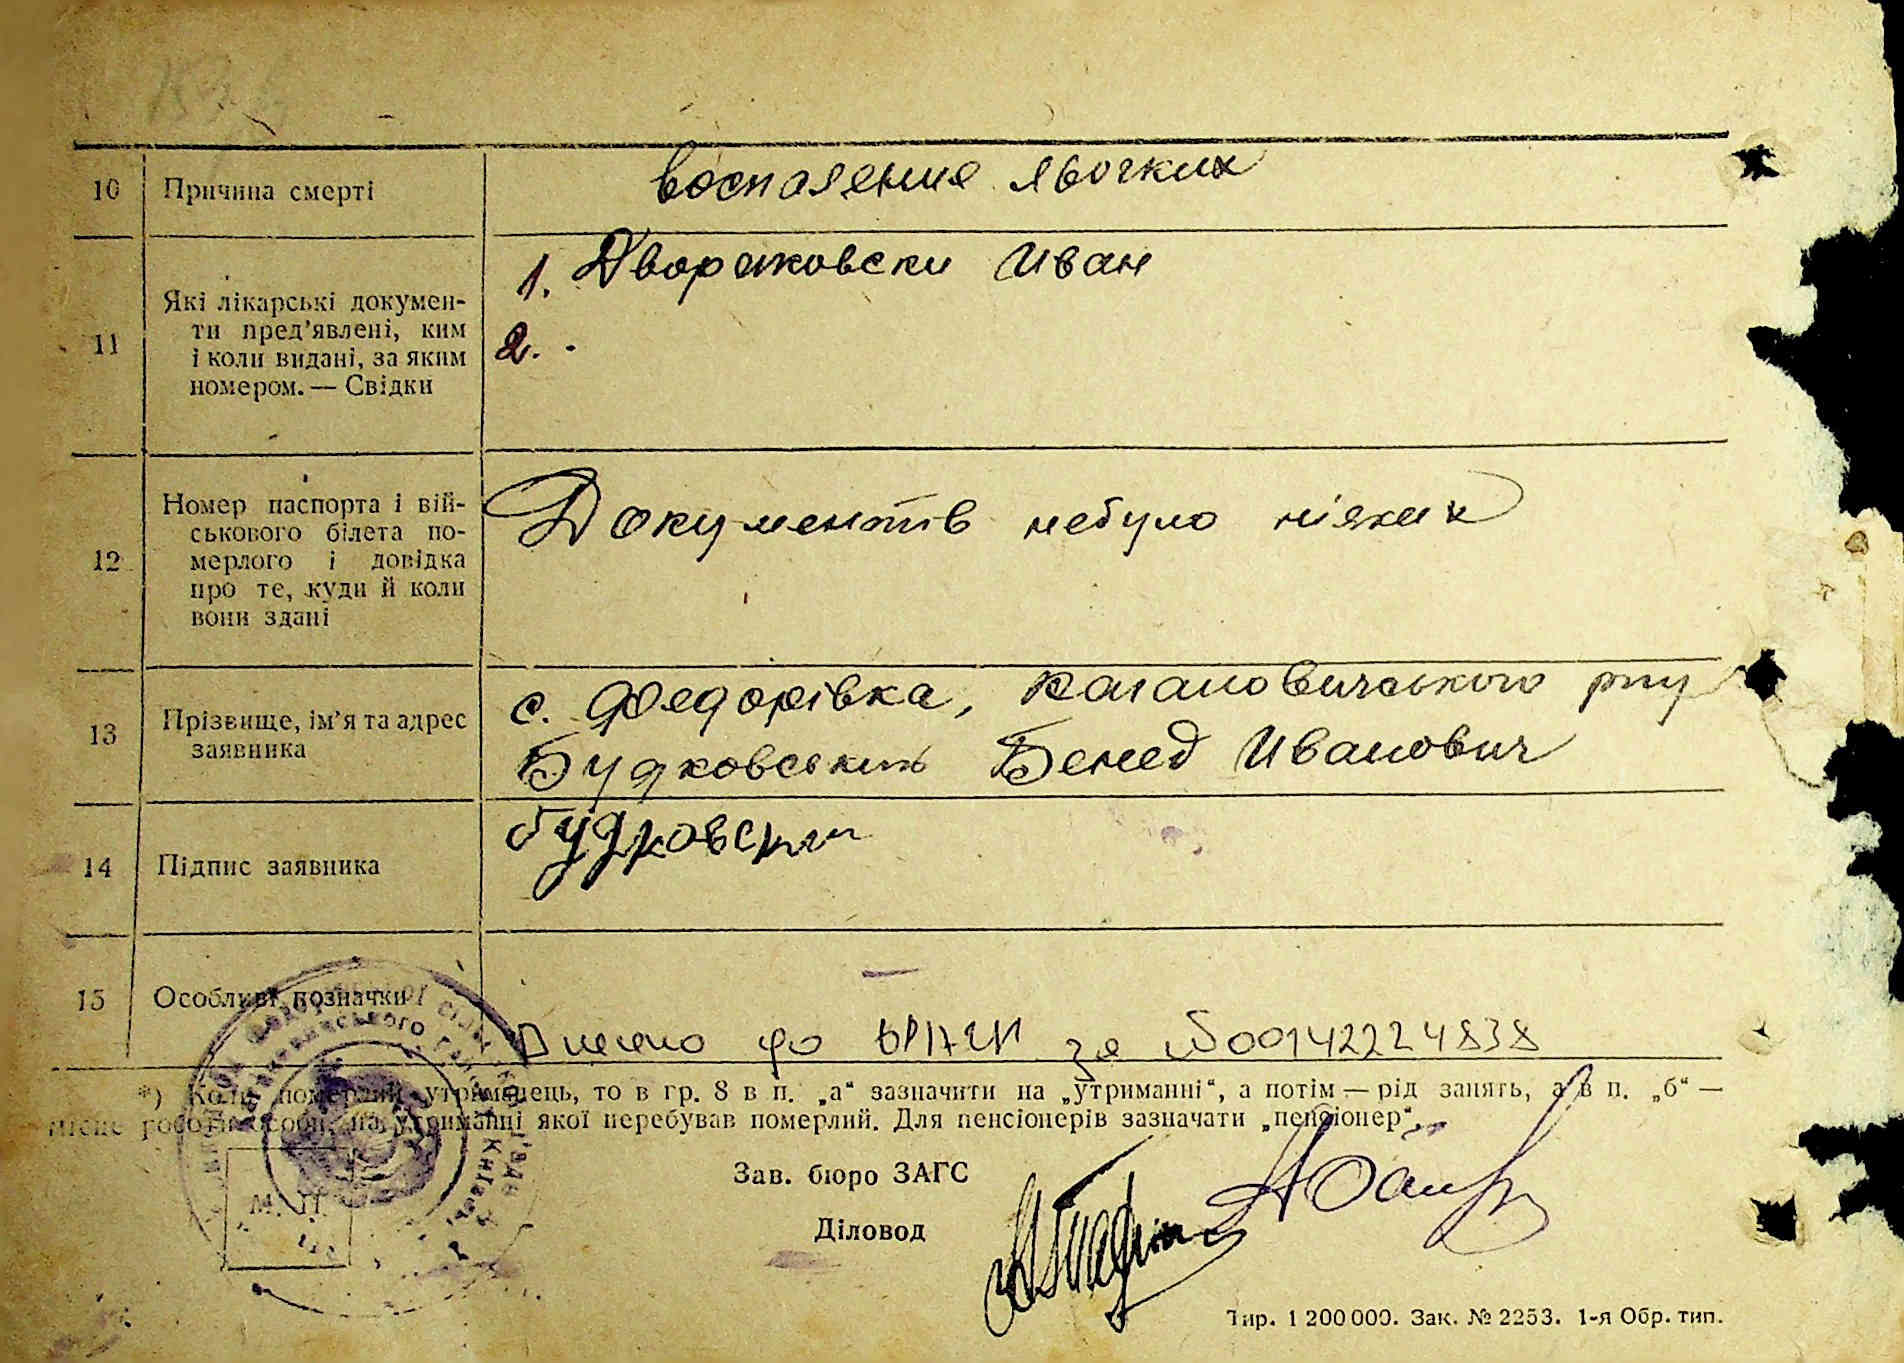 10 Причина смерті
воспаление лвогких
11 Які лікарські докумен-
ти пред'явлені, ким
і коли видані, за яким
номером. — Свідки
1. Двораковски Иван
2.
12 Номер паспорта і вій-
ськового білета по-
мерлого і довідка
про те, куди й коли
вони здані
Документів небуло ніяких
13 Прізвище, ім'я та адрес
заявника
с. Федорівка, Кагановичського р-ну
Будковський Бенед Иванович
14 Підпис заявника
Будковский
15 Особливі позначки
Внесено до за №00142224838
*) Коли померлий утриманець, то в гр. 8 в п. „а“ зазначити на „утриманні“, а потім — рід занять, а в п. „б“ —
місце роботи особи, на утриманні якої перебував померлий. Для пенсіонерів зазначати „пенсіонер“.
Зав. бюро ЗАГС
Діловод
М. П.
Тир. 1 200 000. Зак. № 2253. 1-я Обр. тип.